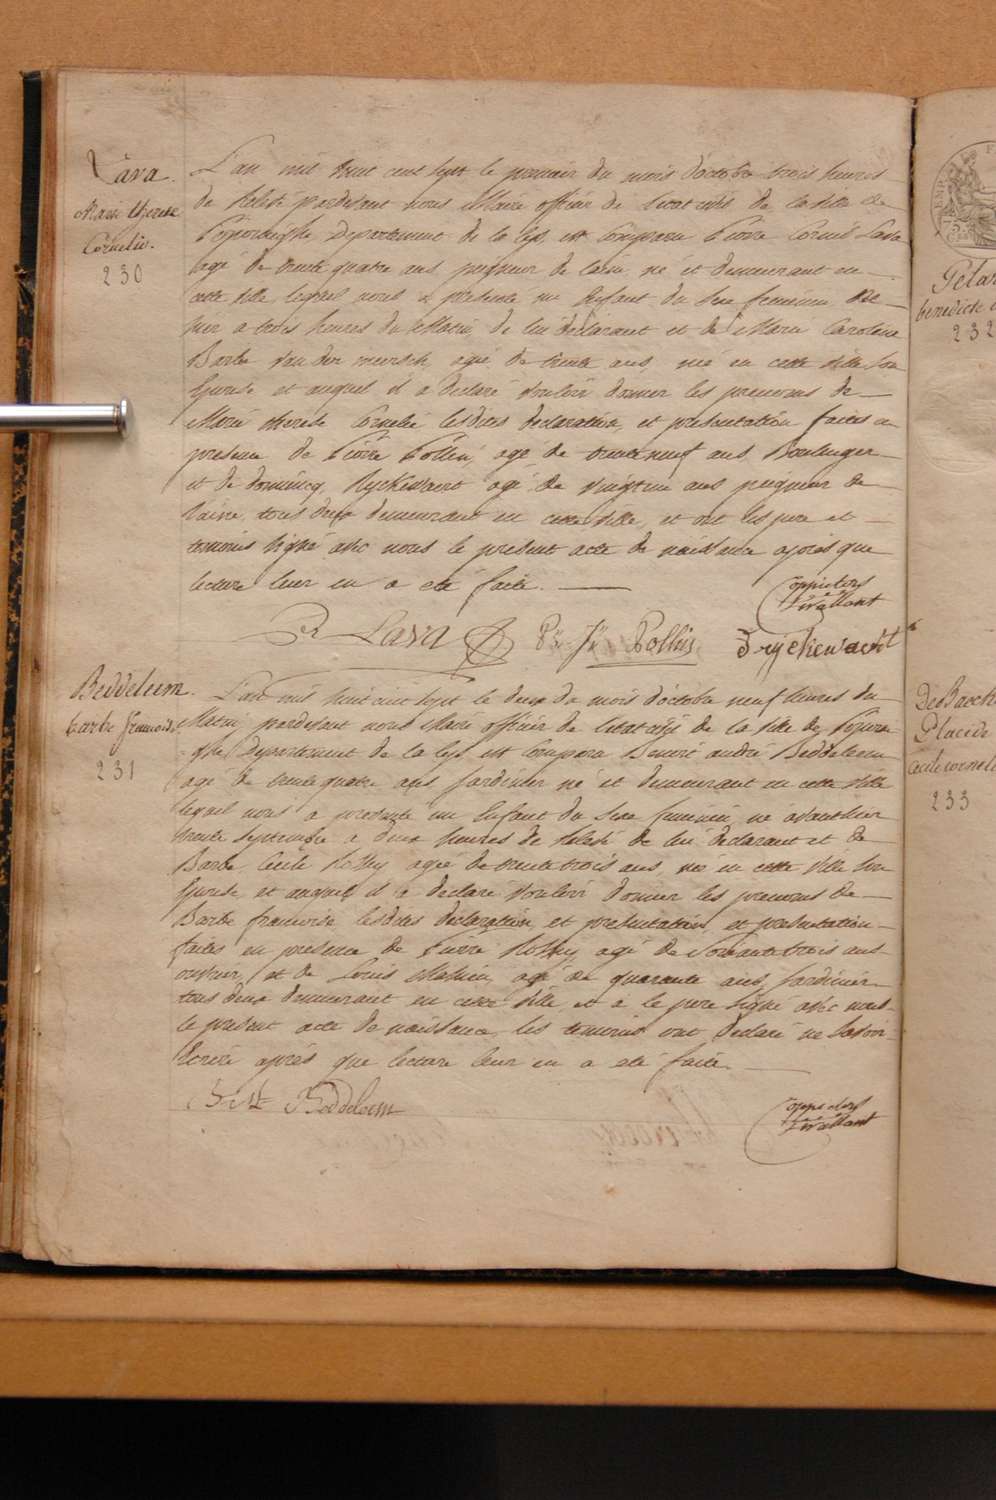 Lava
Marie therese
Cornelie.
230
L'an mil huit cent sept le premier du mois d'octobre trois heures
de Relevé pardevant nous Maire officier de l'etat civil de la ville de
Poperinghe Departement de la Lys, est comparu Pierre Corneil Lava
agé de trente quatre ans peigneur de laine, né et demeurant en
cette ville, lequel nous a presenté un Enfant du Sexe feminin né
hier a trois heures du Matin de lui declarant et de Marie Caroline
Barbe Van der mersch agée de trente ans, née en cette ville son
Epouse et auquel il a declaré vouloir donner les prenoms de
Marie therese Cornelie lesdites declaration, et presentation faites en
presence de Pierre Pollin, agé de trente neuf ans Boulanger
et de dominicq Ryckewaert agé de vingt un ans peigneur de
laine, tous deux demeurant en cette ville, et ont les pere et
temoins signé avec nous le present acte de naissance après que
lecture leur en a eté faite.
Pr Lava
Pr Jn Pollin
D ryckewaert
Beddeleem
barbe francoise
231
L'an mil huit cent sept le deux du mois d'octobre neuf heures du
Matin pardevant nous Maire officier de l'etat civil de la ville de Poperin-
-ghe Departement de la Lys est comparu Benoit André Beddeleem
agé de trente quatre ans Jardinier né et demeurant en cette ville
lequel nous a presenté un Enfant du Sexe feminin, né avant hier
trente Septembre a deux heures de Relevé de lui declarant et de
Barbe Cecile agée de trente trois ans, née en cette ville son
Epouse, et auquel il a declaré vouloir donner les prenoms de
Barbe francoise lesdites declaration, et presentation, et presentation
faites en presence de Pierre agé de Soixante trois ans
ouvrier, et de Louis Mahieu agé de quarante ans, Jardinier
tous deux demeurant en cette ville, et a le pere signé avec nous
le present acte de naissance, les temoins ont declaré ne savoir
Ecrire après que lecture leur en a eté faite.
Beddeleem
benedicte
232
De Baeck
Placide
Cecile cornel
233